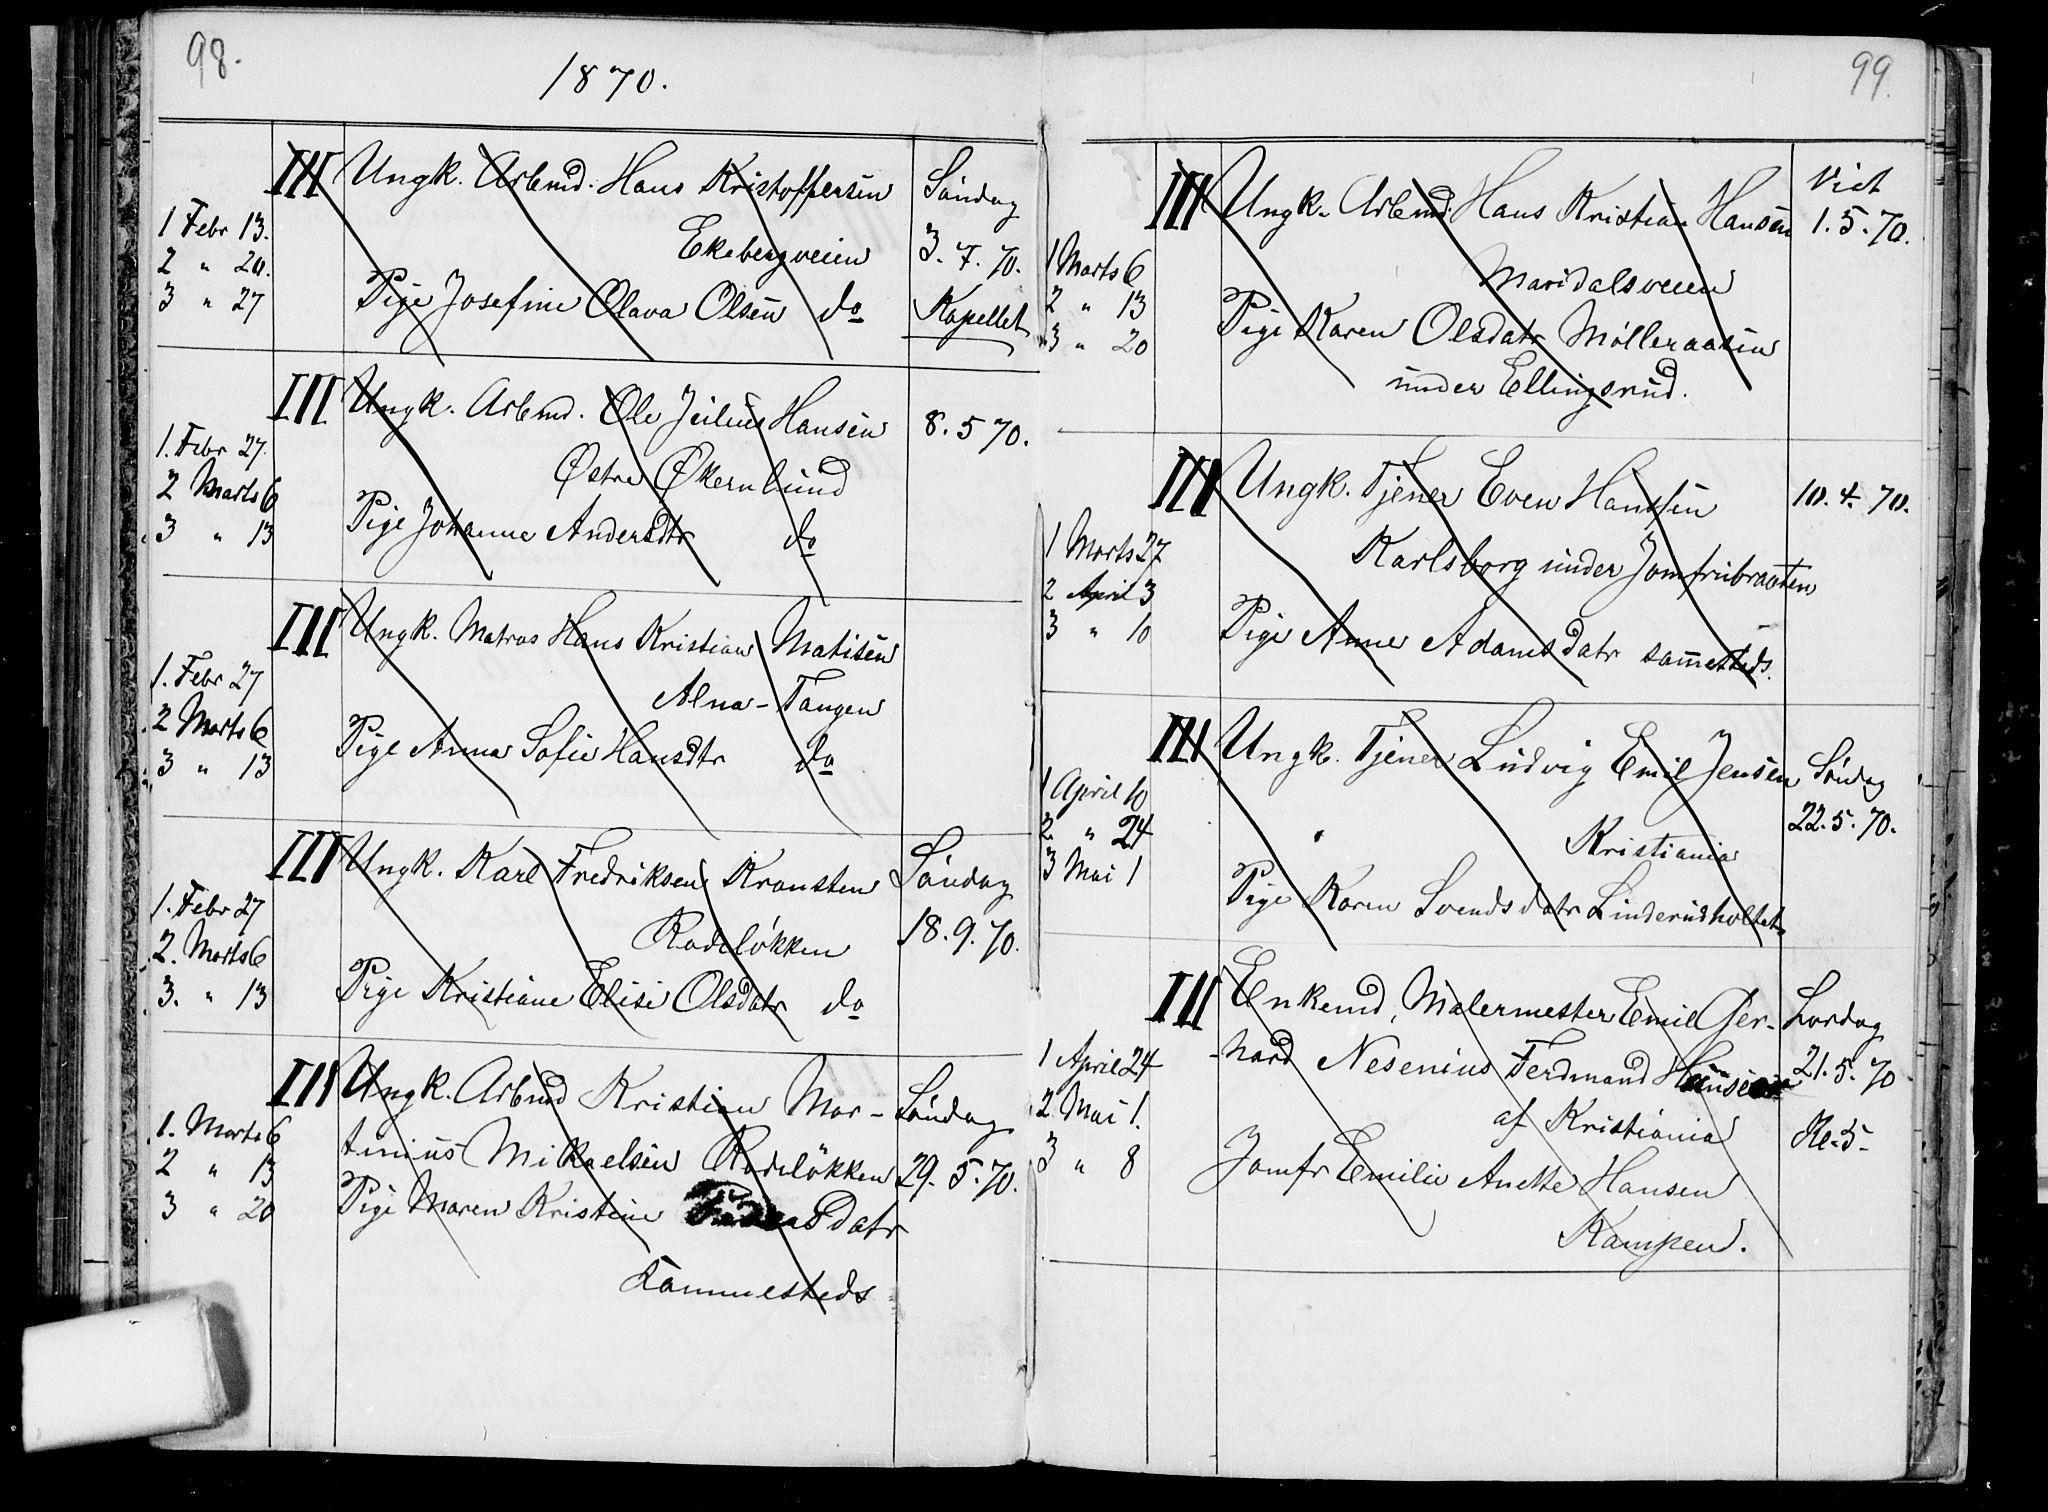 98.
1870.
III Ungk. Arbmd. Hans Kristoffersen Søndag
1 Febr 13. Ekebergveien 3. 7. 70.
2 " 20.
3 " 27 Pige Josefine Olava Olsen do Kapellet
III Ungk. Arbmd. Ole Julius Hansen 8. 5 70.
1. Febr 27. Østre Økern lund
2 Marts 6
3 " 13 Pige Johanne Andersdtr do
III Ungk. Matros Hans Kristian Matisen
1. Febr 27 Alna-Tangen
2 Marts 6
3 " 13 Pige Anna Sofie Hansdtr do
III Ungk. Karl Fredriksen Kronsten Søndag
1. Febr 27 Rodeløkken 18. 9. 70.
2. Marts 6
3. " 13 Pige Kristiane Elise Olsdatr do
III Ungk. Arbmd Kristian Mar- Søndag
1. Marts 6 tinius Mikaelsen Rodeløkken 29. 5. 70.
2 " 13
3 " 20 Pige Maren Kristine datr
Sammesteds
99.
III Ungk. Arbmd. Hans Kristian Hansen Viet
1. 5. 70.
1 Marts 6 Maridalsveien
2 " 13
3 " 20 Pige Karen Olsdatr Mølleraasen
under Ellingsrud.
III Ungk. Tjener Even Hanssen 10. 4. 70.
1 Marts 27 Karlsborg under Jomfrubraaten
2 April 3
3 " 10 Pige Anne Adamsdatr sammesteds.
III Ungk. Tjener Ludvig Emil Jensen Søndag
1 April 10 22. 5. 70.
2. " 24 Kristiania
3 Mai 1 Pige Karen Svendsdatr Linderudholtet
III Enkemd, Malermester Emil Ger- Lørdag
1 April 24 -hard Nesenius Ferdinand Hansen 21. 5. 70
2 Mai 1. af Kristiania Kl. 5
3 " 8 Jomfr Emilie Anette Hansen
Kampen.